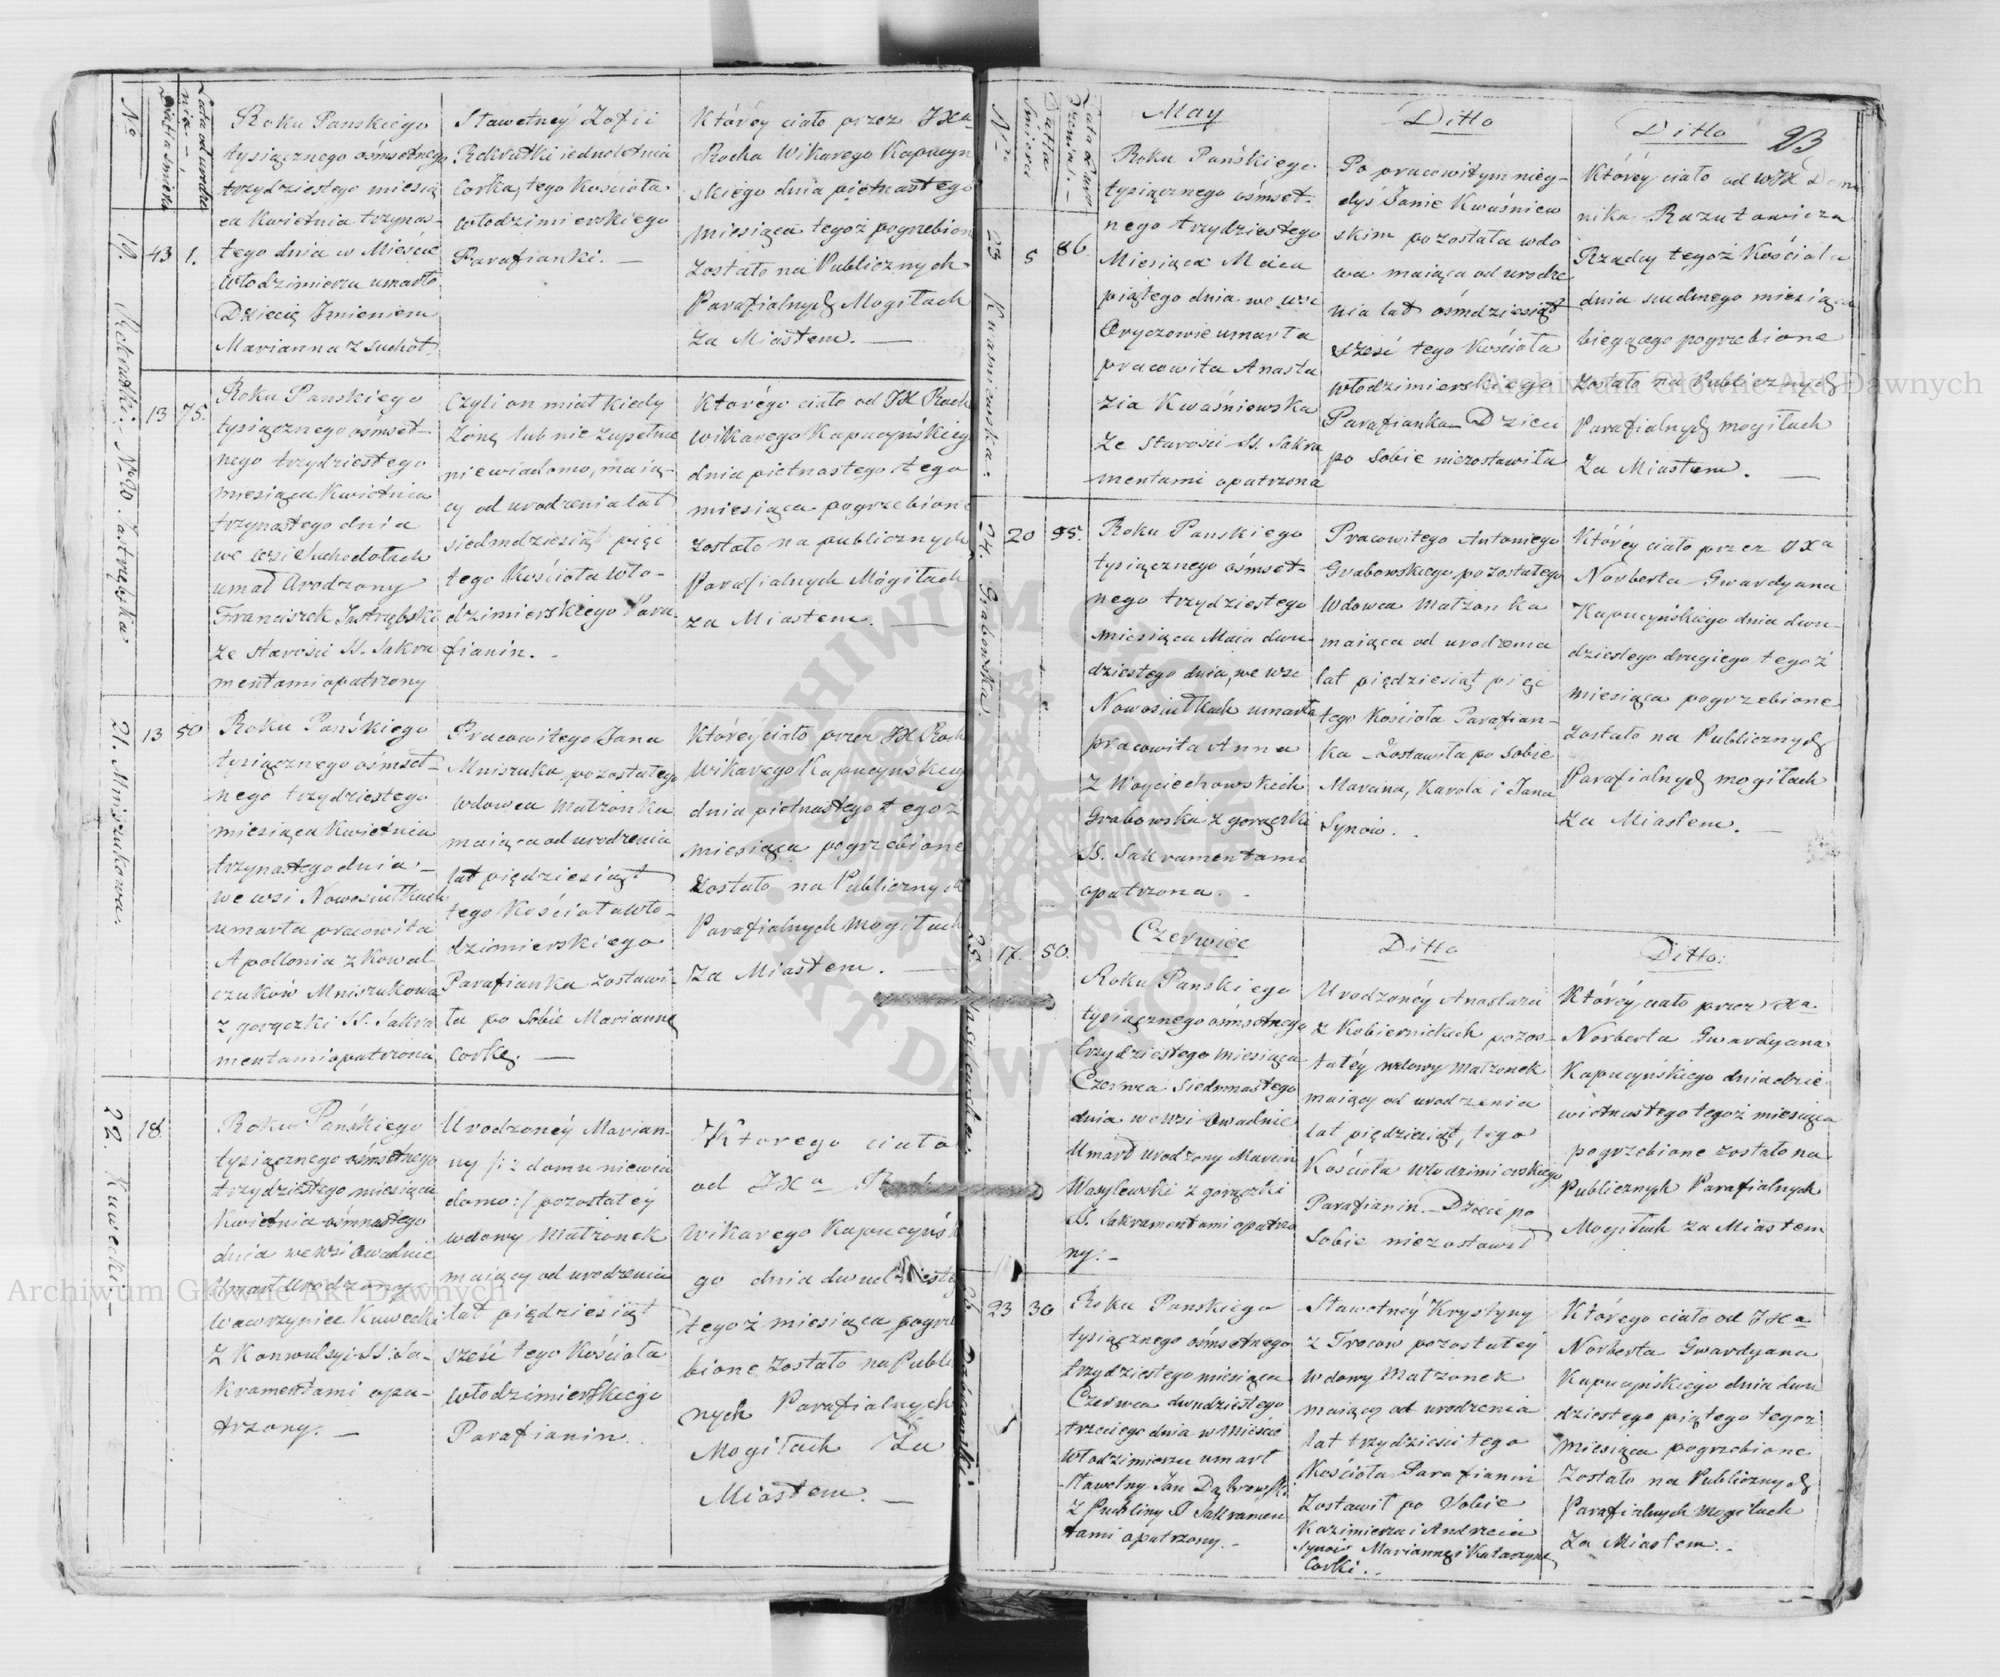 No
Data śmierci
Lata od urodze
nia
19.
Rekrutki.
43
1.
Roku Panskiego
tysiącznego ósmsetnego
trzydziestego miesią
ca Kwietnia trzynas-
tego dnia w Mieście
Włodzimierzu umarło
Dziecię Imieniem
Marianna z suchot.
Sławetnej Zofii
Rekrutki iednoletnia
Corka, tego Kościoła
Włodzimierskiego
Parafianki. —
Któréy ciało przez JXa
Rocha Wikarego Kapucyn
skiego dnia piętnastego
miesiąca tegoż pogrzebion
zostało na Publicznych
Parafialnych Mogiłach
za Miastem. —
Jastrzębska
13
75.
Roku Panskiego
tysiącznego osmset-
nego trzydziestego
miesiąca Kwietnia
trzynastego dnia
we wsi Suchodołach
umał Urodzony
Franciszek Jastrzębski
ze starości SS. Sakra
mentami opatrzony
Czyli on miał kiedy
Zonę lub nie zupełnie
niewiadomo, maią-
cy od urodzenia lat
siedmdziesiąt pięć
tego Kościoła Wło-
dzimierskiego Para
fianin. -
Którégo ciało od JX Roch
Wikarego Kapucyńskieg
dnia pietnastego tego
miesiąca pogrzebione
zostało na publicznych
Parafialnych Mogiłach
za Miastem. —
21. Mniszukowa.
13
50
Roku Pańskiego
tysiącznego osmset-
nego trzydziestego
miesiąca Kwietnia
trzynastego dnia -
we wsi Nowosiułkach
umarła pracowita
Apollonia z Kowal-
czuków Mniszukowa
z gorączki SS. Sakra
mentami opatrzona
Pracowitego Jana
Mniszuka pozostałego
Wdowca Małżonka
maiąca od urodzenia
lat pięćdziesiąt
tego Kościoła Wło-
dzimierskiego
Parafianka Zostawi-
ła po Sobie Mariannę
Corkę. —
Któréy ciało przez JX Roch
Wikarego Kapucyńskieg
dnia pietnastego tegoż
miesiąca pogrzebione
zostało na Publicznych
Parafialnych Mogiłach
za Miastem. —
22. Kuwecki. —
18
Roku Pańskiego
tysiącznego ósmsetnego
trzydziestego miesiąca
Kwietnia ósmnastego
dnia we wsi Owadnie
Umarł Urodzony
Wawrzyniec Kuwecki
z Konwulsyi SS: Sa-
kramentami opa-
trzony. —
Urodzonéy Marian-
ny /: z domu niewia
domo :/ pozostałey
wdowy Małżonek
maiący od urodzenia
lat pięćdziesiąt
sześć tego Kościoła
Włodzimierskiego
Parafianin.
Ktorego ciało
od JXa Roch
Wikarego Kapucyńsk
go dnia dwudziesteg
tegoż miesiąca pogrze
bione zostało na Publi
nych Parafialnych
Mogiłach Za
Miastem. —
23
Data
Śmierci
Lata od Uro
dzenia. -
May
Ditto
Ditto
23 Kwaśniewska.
5
86
Roku Pańskiego
tysiącznego ósmset-
nego trzydziestego
Miesiąca Maia
piątego dnia we wsi
Oryczowie umarła
pracowita Anasta
zia Kwaśniewska
ze starości SS. Sakra
mentami opatrzona
Po pracowitym nieg-
dyś Janie Kwaśniew
skim pozostała wdo
wa maiąca od urodze
nia lat ósmdziesiąt
sześć tego Kościoła
Włodzimierskiego
Parafianka Dzieci
po Sobie niezostawiła
Któréy ciało od WJX Domi
nika Razutowicza
Rządcy tegoż Kościoła
dnia siudmego miesiąca
biegącego pogrzebione
zostało na Publicznych
Parafialnych mogiłach
Za Miastem. —
24. Grabowska.
20
55.
Roku Panskiego
tysiącznego ósmset-
nego trzydziestego
miesiąca Maia dwu
dziestego dnia, we wsi
Nowosiułkach umarła
pracowita Anna
z Woyciechowskich
Grabowska z gorączki
SS. Sakramentami
opatrzona. -
Pracowitego Antoniego
Grabowskiego pozostałego
Wdowca Małżonka
maiąca od urodzenia
lat pięćdziesiąt pięć
tego Kościoła Parafian-
ka - Zostawiła po sobie
Marcina, Karola i Jana
Synów. -
Któréy ciało przez JXa
Norberta Gwardyana
Kapucyńskiego dnia dwu-
dziestego drugiego tegoż
miesiąca pogrzebione
Zostało na Publicznych
Parafialnych mogiłach
Za Miastem. -
Czerwiec
Ditto
Ditto:
25.
17.
50.
Roku Panskiego
tysiącznego ósmsetnego
trzydziestego Miesiąca
Czerwca Siedmnastego
dnia we wsi Owadnie
Umarł urodzony Marcin
Wasylewski z gorączki
SS. Sakramentami opatrzo
ny: -
Urodzonéy Anastazii
z Kobiernickich pozos-
tałéy wdowy Małżonek
maiący od urodzenia
lat pięćdziesiąt, tego
Kościoła Włodzimierskiego
Parafianin. - Dzieci po
Sobie niezostawił
Któréy ciało przez JXa.
Norberta Gwardyana
Kapucyńskiego dnia dzie
więtnastego tegoż miesiąca
pogrzebione zostało na
Publicznych Parafialnych
Mogiłach za Miastem
26. Dąbrowski.
23
30
Roku Panskiego
tysiącznego ósmsetnego
trzydziestego miesiąca
Czerwca dwudziestego
trzeciego dnia w Mieście
Włodzimierzu umarł
Sławetny Jan Dąbrowski
z Puchliny SS Sakramen
tami opatrzony. -
Sławetnéy Krystyny
z Trocow pozostałey
Wdowy Małżonek
maiący od urodzenia
lat trzydzieści tego
Kościoła Parafianin
Zostawił po Sobie
Kazimierza i Andrzeia
Synów Mariannę i Katarzynę
Corki. -
Którego ciało od JXa
Norberta Gwardyana
Kapucyńskiego dnia dwu
dziestego piątego tegoż
Miesiąca pogrzebione
Zostało na Publicznych
Parafialnych Mogiłach
Za Miastem. -
Archiwum Główne Akt Dawnych
Archiwum Główne Akt Dawnych
ARCHIWUM GŁÓWNE AKT DAWNYCH